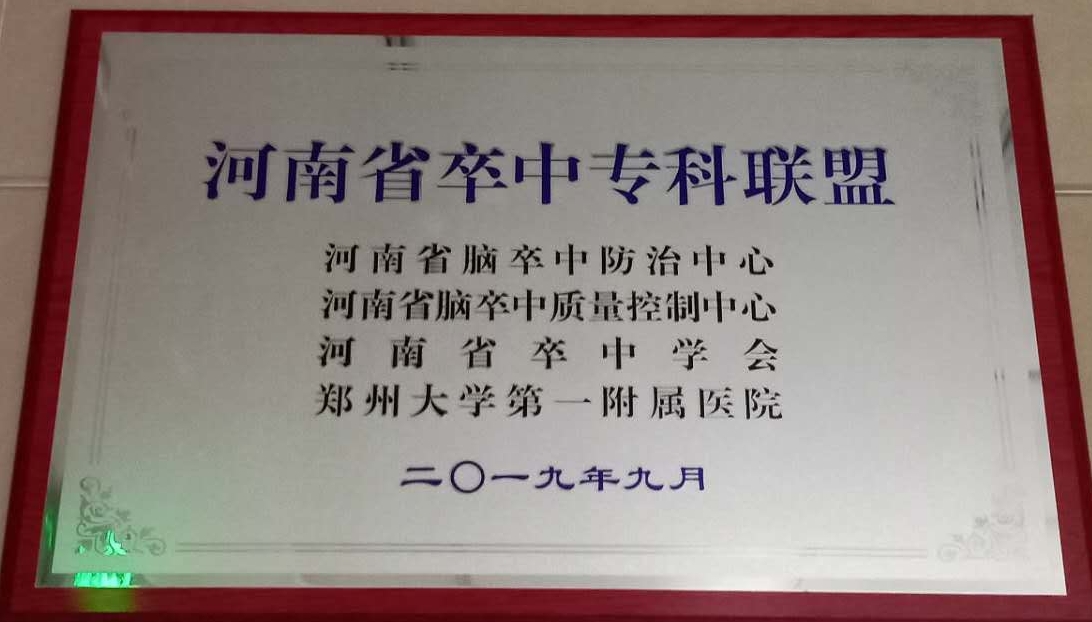 河南省卒中专科联盟
河南省脑卒中防治中心
河南省脑卒中质量控制中心
河南省卒中学会
郑州大学第一附属医院
二〇一九年九月